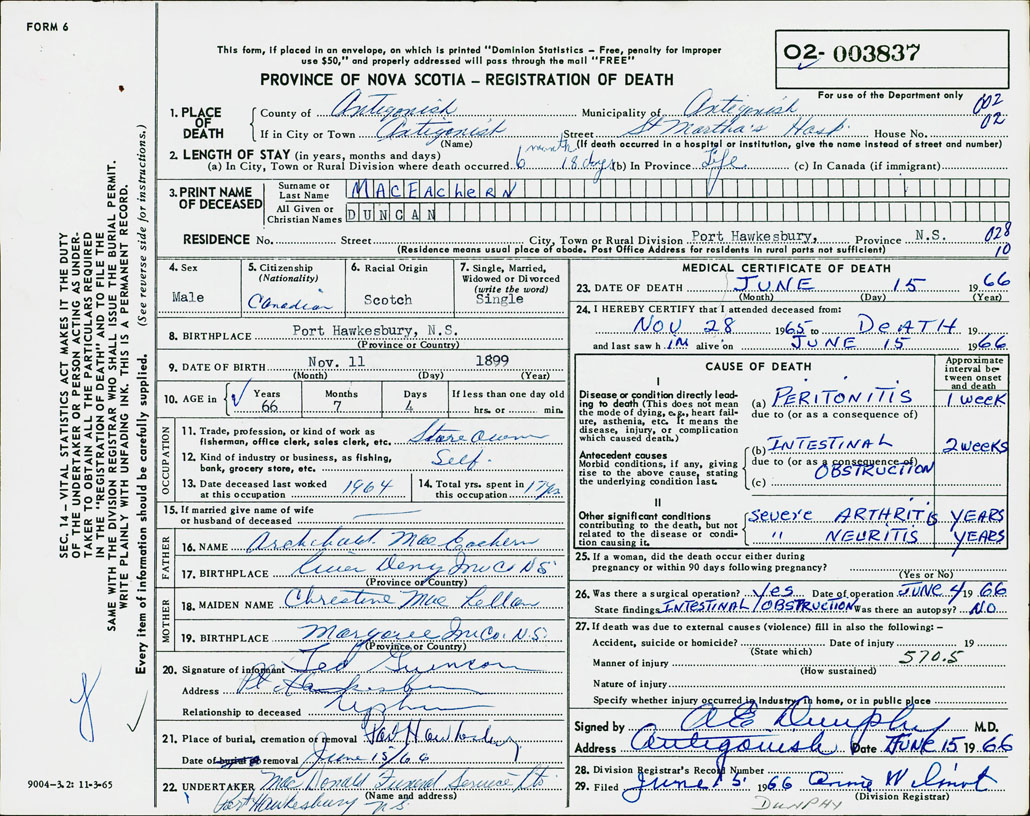 FORM 6
This form, if placed in an envelope, on which is printed "Dominion Statistics – Free, penalty for improper
use $50," and properly addressed will pass through the mail "FREE"
02- 003837
PROVINCE OF NOVA SCOTIA – REGISTRATION OF DEATH
For use of the Department only
1. PLACE OF DEATH
County of Antigonish Municipality of Antigonish 002
If in City or Town Antigonish Street St Martha's Hosp. House No. 02
(Name) (If death occurred in a hospital or institution, give the name instead of street and number)
2. LENGTH OF STAY (in years, months and days)
(a) In City, Town or Rural Division where death occurred 6 months 18 days (b) In Province Life (c) In Canada (if immigrant)
3. PRINT NAME OF DECEASED
Surname or Last Name MACEACHERN
All Given or Christian Names DUNCAN
RESIDENCE No. Street City, Town or Rural Division Port Hawkesbury, Province N.S. 028
(Residence means usual place of abode. Post Office Address for residents in rural parts not sufficient) 10
4. Sex
Male
5. Citizenship
(Nationality)
Canadian
6. Racial Origin
Scotch
7. Single, Married,
Widowed or Divorced
(write the word)
Single
8. BIRTHPLACE Port Hawkesbury, N.S.
(Province or Country)
9. DATE OF BIRTH Nov. 11 1899
(Month) (Day) (Year)
10. AGE in Years 66 Months 7 Days 4 If less than one day old
hrs. or min.
OCCUPATION
11. Trade, profession, or kind of work as
fisherman, office clerk, sales clerk, etc. Store Owner
12. Kind of industry or business, as fishing,
bank, grocery store, etc. Self.
13. Date deceased last worked
at this occupation 1964
14. Total yrs. spent in
this occupation
15. If married give name of wife
or husband of deceased
FATHER
16. NAME Archibald MacEachern
17. BIRTHPLACE River Denys Inv Co N.S.
(Province or Country)
MOTHER
18. MAIDEN NAME Christine MacLellan
19. BIRTHPLACE Margaree Inv Co. N.S.
(Province or Country)
20. Signature of informant Ted
Address Pt Hawkesbury
Relationship to deceased Nephew
21. Place of burial, cremation or removal Port Hawkesbury
Date of burial or removal June 15/66
22. UNDERTAKER MacDonald Funeral Service Ltd.
Port Hawkesbury N.S. (Name and address)
MEDICAL CERTIFICATE OF DEATH
23. DATE OF DEATH JUNE 15 1966
(Month) (Day) (Year)
24. I HEREBY CERTIFY that I attended deceased from:
NOV 28 1965 to DEATH 19
and last saw h im alive on JUNE 15 1966
CAUSE OF DEATH
Approximate interval between onset and death
I
Disease or condition directly leading to death (This does not mean
the mode of dying, e.g., heart failure, asthenia, etc. It means the
disease, injury, or complication
which caused death.)
(a) PERITONITIS 1 week
due to (or as a consequence of)
Antecedent causes
Morbid conditions, if any, giving
rise to the above cause, stating
the underlying condition last.
(b) INTESTINAL 2 weeks
due to (or as a consequence of)
OBSTRUCTION
(c)
II
Other significant conditions
contributing to the death, but not
related to the disease or condition causing it.
severe ARTHRITIS YEARS
" NEURITIS YEARS
25. If a woman, did the death occur either during
pregnancy or within 90 days following pregnancy?
(Yes or No)
26. Was there a surgical operation? yes Date of operation JUNE 4 1966
State findings INTESTINAL OBSTRUCTION Was there an autopsy? NO
27. If death was due to external causes (violence) fill in also the following: –
Accident, suicide or homicide? Date of injury 19
(State which)
Manner of injury 570.5
(How sustained)
Nature of injury
Specify whether injury occurred in Industry, in home, or in public place
Signed by A E Dunphy M.D.
Address Antigonish Date JUNE 15 1966
28. Division Registrar's Record Number
29. Filed June 15 1966 Annie Wilmot
DUNPHY (Division Registrar)
SEC. 14 – VITAL STATISTICS ACT MAKES IT THE DUTY
OF THE UNDERTAKER OR PERSON ACTING AS UNDER-
TAKER TO OBTAIN ALL THE PARTICULARS REQUIRED
IN THE "REGISTRATION OF DEATH" AND TO FILE THE
SAME WITH THE DIVISION REGISTRAR WHO SHALL ISSUE THE BURIAL PERMIT.
WRITE PLAINLY WITH UNFADING INK. THIS IS A PERMANENT RECORD.
Every item of information should be carefully supplied. (See reverse side for instructions.)
9004-3.2: 11-3-65